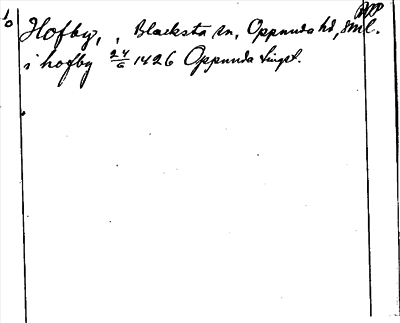 Hofby, , Blacksta sn, Oppunda hd, Sml.
i hofby 24/6 1426 Oppunda tingst.